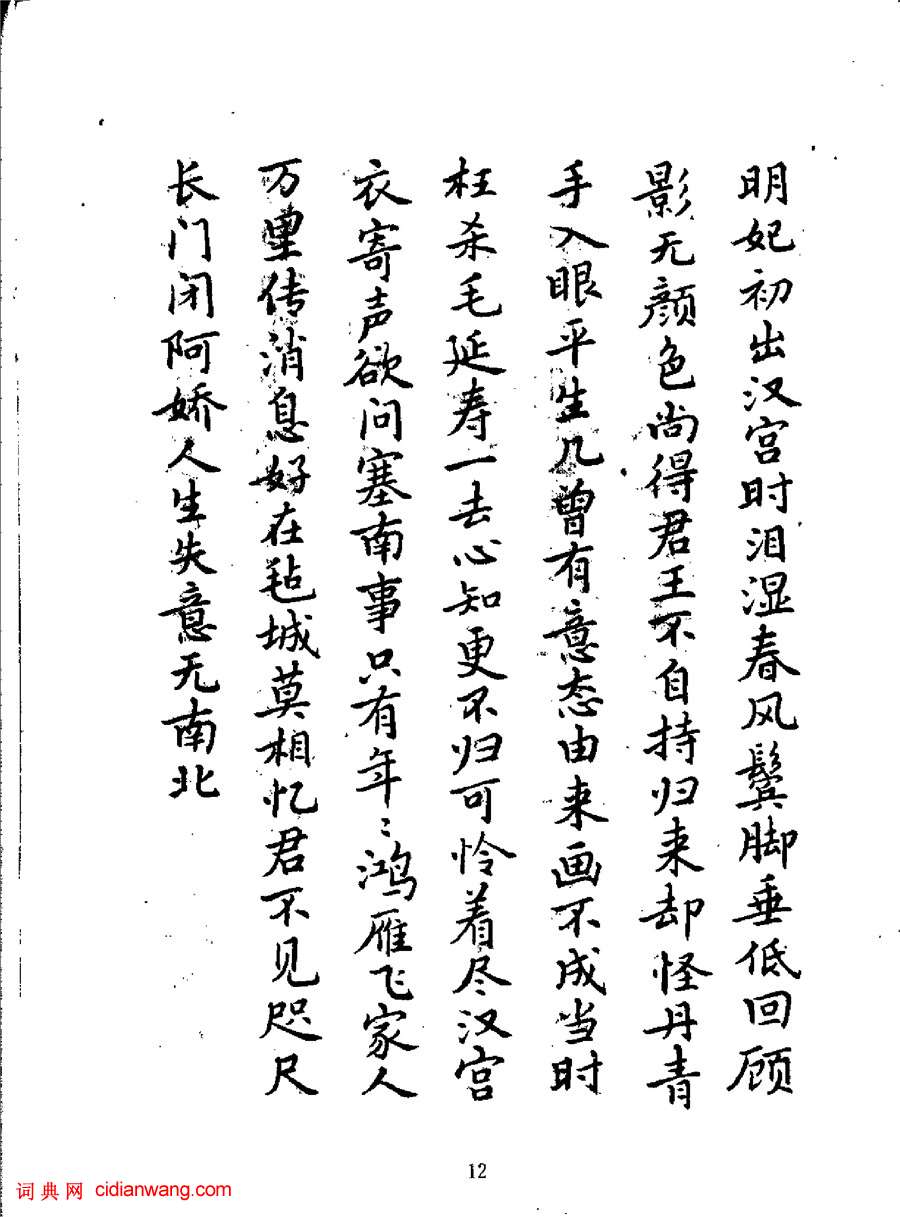 明妃初出汉宫时泪湿春风鬓脚垂低回顾
影无颜色尚得君王不自持归来却怪丹青
手入眼平生几曾有意态由来画不成当时
枉杀毛延寿一去心知更不归可怜着尽汉宫
衣寄声欲问塞南事只有年〻鸿雁飞家人
万里传消息好在毡城莫相忆君不见咫尺
长门闭阿娇人生失意无南北
12
词典网 cidianwang.com